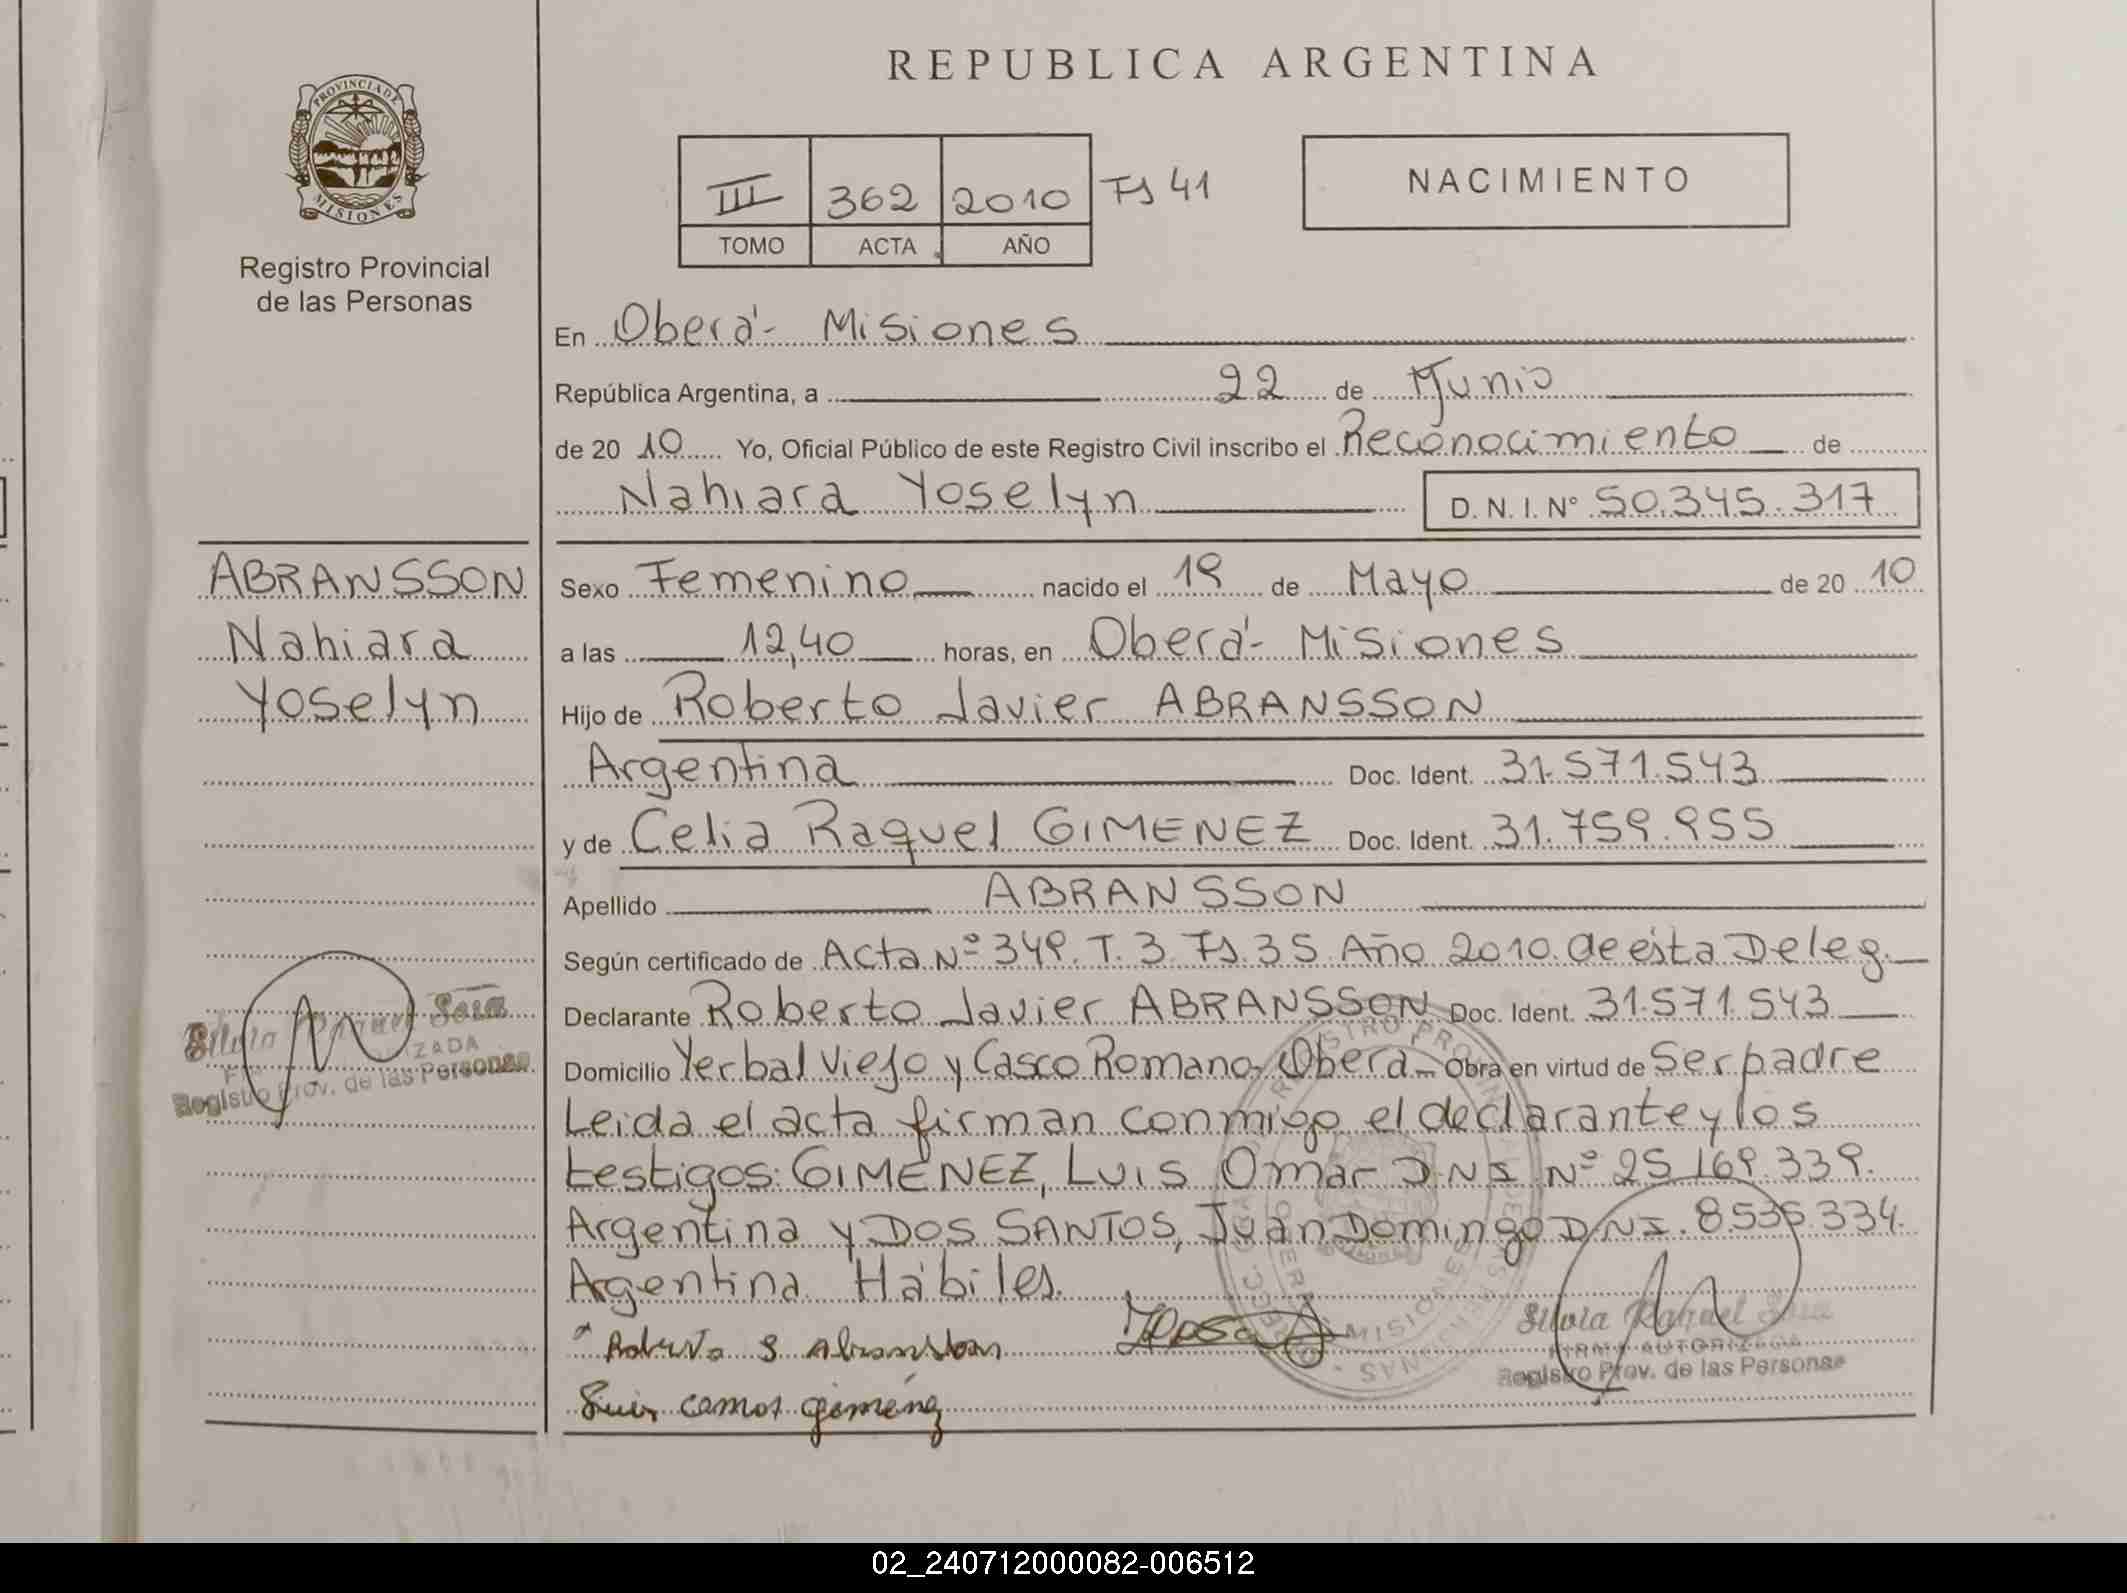 REPUBLICA ARGENTINA
PROVINCIA DE MISIONES
Registro Provincial
de las Personas
III 362 2010 Fs 41
TOMO ACTA AÑO
NACIMIENTO
En Oberá - Misiones
República Argentina, a 22 de Junio
de 20 10 Yo, Oficial Público de este Registro Civil inscribo el Reconocimiento de
Nahiara Yoselyn D.N.I. Nº 50.345.317
ABRANSSON
Nahiara
Yoselyn
Sexo Femenino nacido el 19 de Mayo de 20 10
a las 12,40 horas, en Oberá - Misiones
Hijo de Roberto Javier ABRANSSON
Argentina Doc. Ident. 31.571.543
y de Celia Raquel GIMENEZ Doc. Ident. 31.759.955
Apellido ABRANSSON
Según certificado de Acta Nº 349. T. 3 Fs 35 Año 2010 de esta Deleg.
Declarante Roberto Javier ABRANSSON Doc. Ident. 31.571.543
Domicilio Yerbal Viejo y Casco Romano - Oberá - Obra en virtud de Ser padre
Leida el acta firman conmigo el declarante y los
testigos: GIMENEZ, Luis Omar D.N.I. Nº 25.169.339.
Argentina y DOS SANTOS, Juan Domingo D.N.I. 8.535.334.
Argentina Hábiles.
Silvia Raquel Sosa
Registro Prov. de las Personas
Silvia Raquel Sosa
FIRMA AUTORIZADA
Registro Prov. de las Personas
02_240712000082-006512